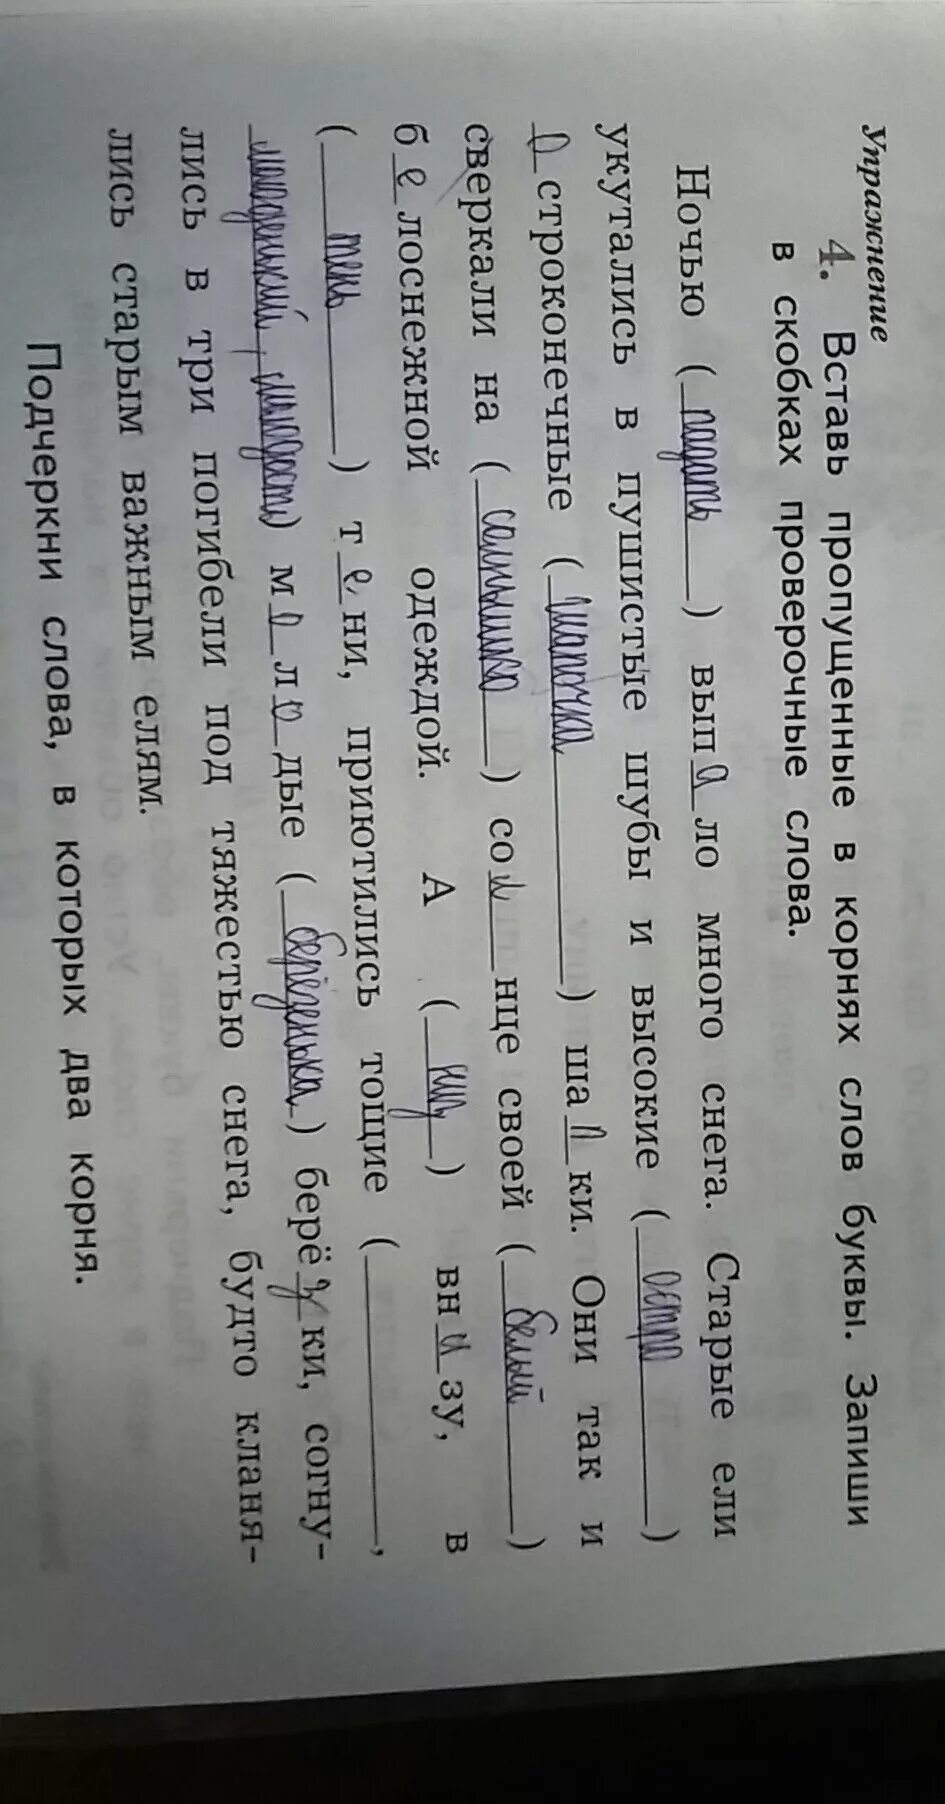 Упражнение
4. Вставь пропущенные в корнях слов буквы. Запиши
в скобках проверочные слова.
Ночью (падать) вып а ло много снега. Старые ели
укутались в пушистые шубы и высокие (остро)
о строконечные (шапочка) ша п ки. Они так и
сверкали на (солнышко) со л нце своей (белый)
б е лоснежной одеждой. А (низ) вн и зу, в
(тень) т е ни, приютились тощие ( ),
молоденький, молодость) м о л о дые (берёзенька) берё з ки, согну-
лись в три погибели под тяжестью снега, будто кланя-
лись старым важным елям.
Подчеркни слова, в которых два корня.